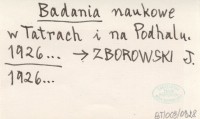 Badania naukowe
w Tatrach i na Podhalu.
1926... → ZBOROWSKI J.
1926...